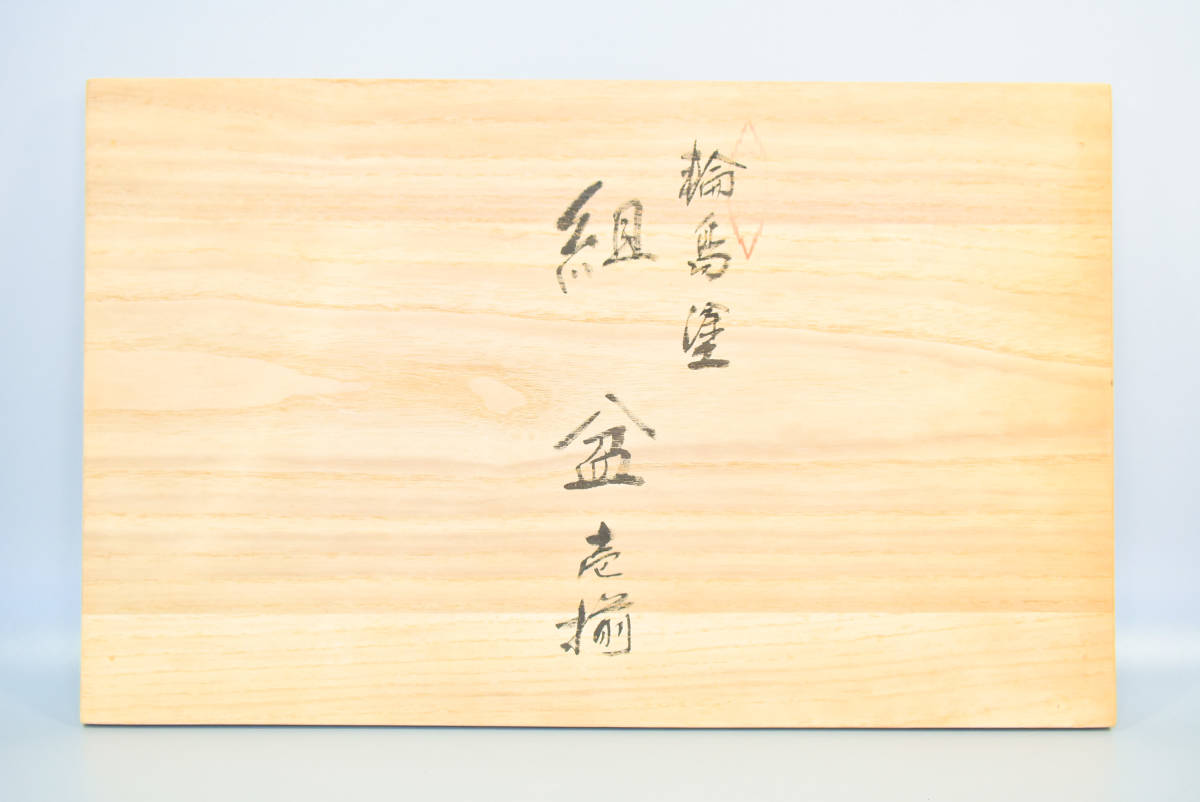 輪島塗
組盆壱揃